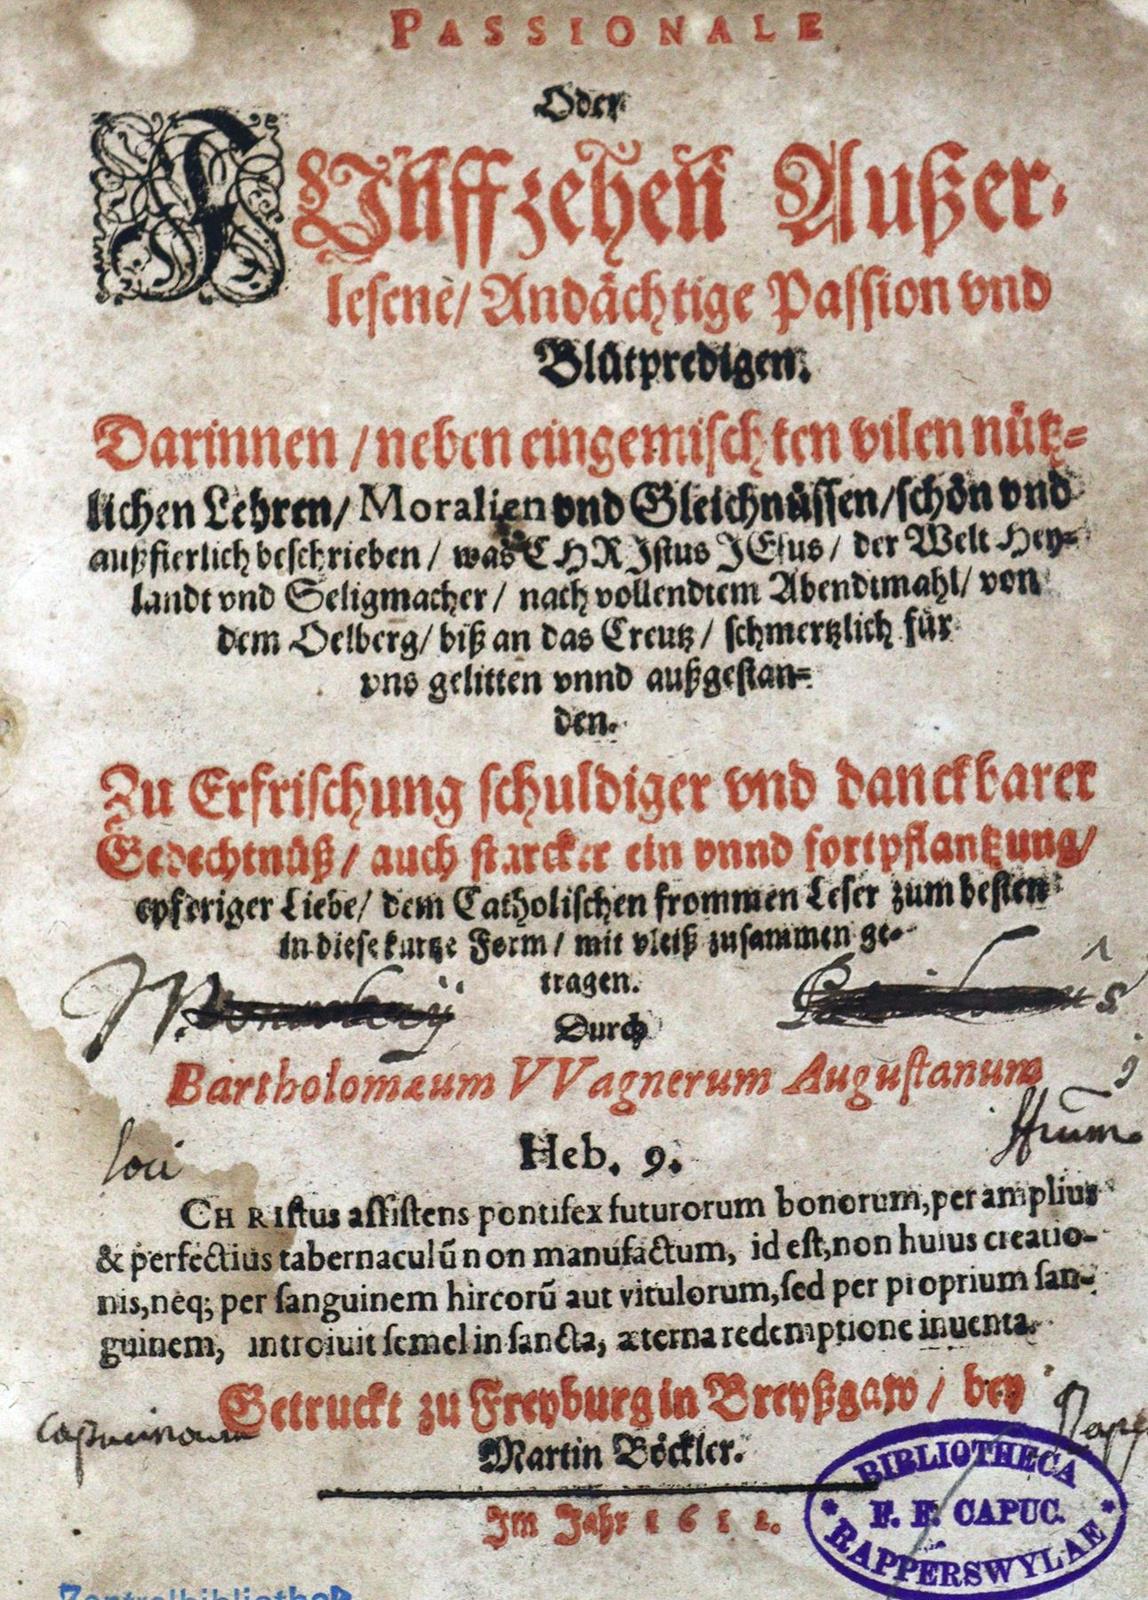 PASSIONALE
Oder
FVnffzehen Außer-
lesene/ Andächtige Passion vnd
Blůtpredigen.
Darinnen / neben eingemischten vilen nütz-
lichen Lehren/ Moralien vnd Gleichnüssen/ schön vnd
außfierlich beschrieben / was CHRIstus JEsus / der Welt Hey-
landt vnd Seligmacher / nach vollendtem Abendtmahl/ von
dem Oelberg/ biß an das Creutz / schmertzlich für
vns gelitten vnnd außgestan-
den.
Zu Erfrischung schuldiger vnd danckbarer
Gedechtnüß/ auch starcker ein vnnd fortpflantzung/
eyferiger Liebe/ dem Catholischen frommen Leser zum besten
in diese kurtze Form / mit vleiß zusammen ge-
tragen.
Durch
Bartholomæum VVagnerum Augustanum
loci
Heb. 9.
CHRIstus assistens pontifex futurorum bonorum, per amplius
& perfectius tabernaculũ non manufactum, id est, non huius creatio-
nis, neq; per sanguinem hircorũ aut vitulorum, sed per proprium san-
guinem, introiuit semel in sancta, æterna redemptione inuenta.
Getruckt zu Freyburg in Breyßgaw / bey
Martin Böckler.
Im Jahr 1612.
BIBLIOTHECA
F. F. CAPUC.
RAPPERSWYLAE
Zentralbibliothek